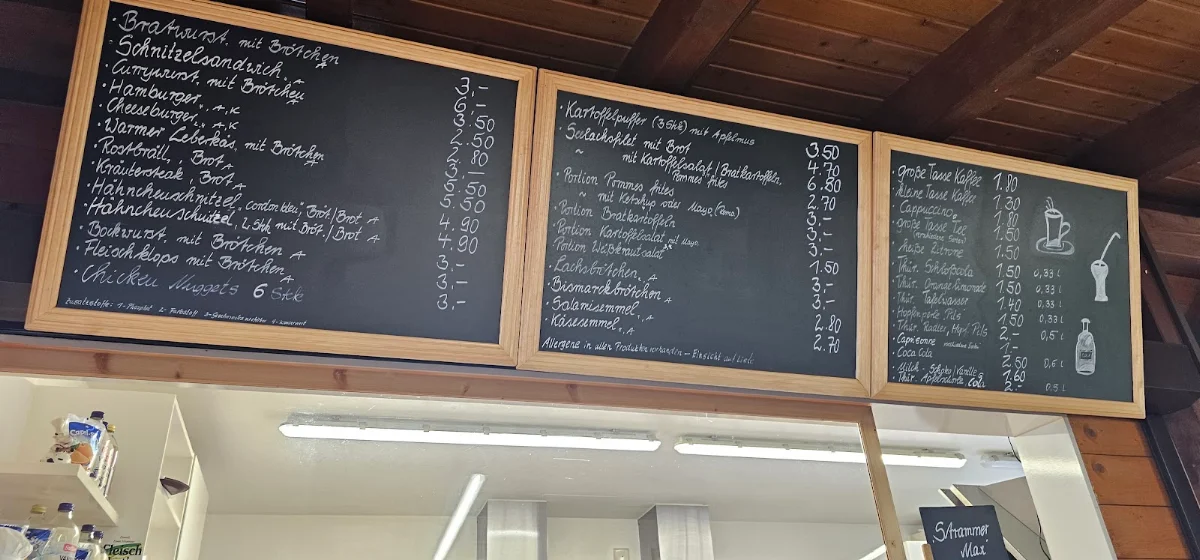 · Bratwurst, mit Brötchen A 3,-
· Schnitzelsandwich, A 6,-
· Currywurst, mit Brötchen A 3,50
· Hamburger, A,K 2.50
· Cheeseburger, A,K 2.80
· Warmer Leberkäs, mit Brötchen 3,-
· Rostbrätl, Brot A 5.50
· Kräutersteak, Brot A 5.50
· Hähnchenschnitzel "Cordon bleu", Bröt./Brot A 4.90
· Hähnchenschnitzel, 2 Stk mit Bröt./Brot A 4.90
· Bockwurst, mit Brötchen A 3,-
· Fleischklops mit Brötchen A 3,-
· Chicken Nuggets 6 Stck 3,-
Zusatzstoffe: 1- Phosphat 2- Farbstoff
· Kartoffelpuffer (3 Stck) mit Apfelmus 3.50
· Seelachsfilet mit Brot 4.70
~ mit Kartoffelsalat / Bratkartoffeln, 6.80
Pommes frites
· Portion Pommes frites 2.70
mit Ketchup oder Mayo 3.-
· Portion Bratkartoffeln 3.-
· Portion Kartoffelsalat mit Mayo 3.-
· Portion Weißkrautsalat 1.50
· Lachsbrötchen, A 3.-
· Bismarckbrötchen A 3,-
· Salamisemmel, A 2.80
· Käsesemmel, A 2.70
Allergene in allen Produkten vorhanden - Einsicht auf Liste
· große Tasse Kaffee 1.80
· kleine Tasse Kaffee 1.30
· Cappuccino 1.80
· große Tasse Tee 1.50
(verschiedene Sorten)
· heiße Zitrone 1.50
· Thür. Schloßcola 1.50 0,33 l
· Thür. Orangenlimonade 1.50 0,33 l
· Thür. Tafelwasser 1.40 0,33 l
· Hopfenperle Pils 1.50 0,33 l
· Thür. Radler, Hopf. Pils 2.- 0,5 l
· Caprisonne verschiedene Sorten 1.-
· Coca Cola 2.50 0,5 l
· Milch - Schoko/Vanille 1.60
· Thür. Apfelschorle, Cola 2.- 0,5 l
Capri
Fleisch
Strammer
Max